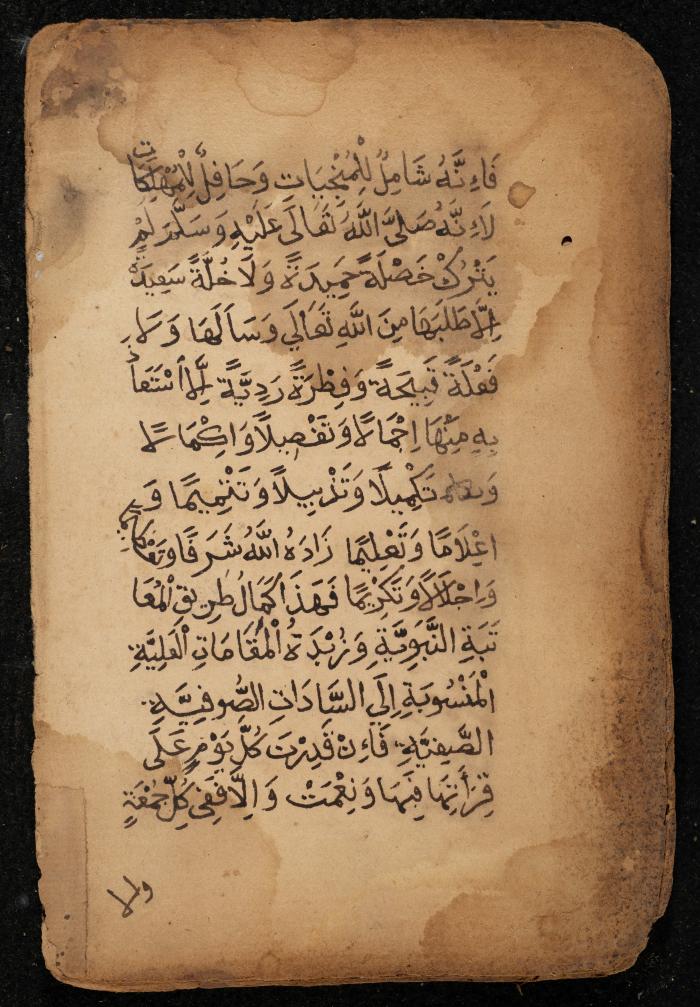 فَاِنَّهُ شَامِلٌ لِلْمُنْجِيَاتِ وَحَافِلٌ لِلْمُهْلِكَات
لَاِنَّهُ صَلَّى اللَّهُ تَعَالَى عَلَيْهِ وَسَلَّمَ لَمْ
يَتْرُكْ خَصْلَةً حَمِيدَةً وَلَا خُلَّةً سَعِيدَةً
اِلَّا طَلَبَهَا مِنَ اللَّهِ تَعَالَي وَسَاَلَهَا وَلَا
فَعْلَةً قَبِيحَةً وَفِطْرَةً رَدِيَّةً اِلَّا اسْتَعَاذَ
بِهِ مِنْهَا اِجْمَالًا وَتَفْصِيلًا وَاِكْمَالًا
تَكْمِيلًا وَتَذْيِيلًا وَتَتْمِيمًا وَ
اِعْلَامًا وَتَعْلِيمًا زَادَهُ اللَّهُ شَرَفًا وَتَعْظِيم
وَاِجْلَالًا وَتَكْرِيمًا فَهَذَا كَمَالُ طَرِيقِ الْمُعَا
تَبَةِ النَّبَوِيَّةِ وَزُبْدَةُ الْمَقَامَاتِ الْعَلِيَّةِ
الْمَنْسُوبَةِ اِلَي السَّادَاتِ الصُّوفِيَّةِ
الصَّفِيَّةِ فَاِنْ قَدِرْتَ كُلَّ يَوْمٍ عَلَى
قِرَاَتِهَا فَبِهَا وَنِعْمَتْ وَاِلَّا فَفِي كُلِّ جُمْعَةٍ
والا